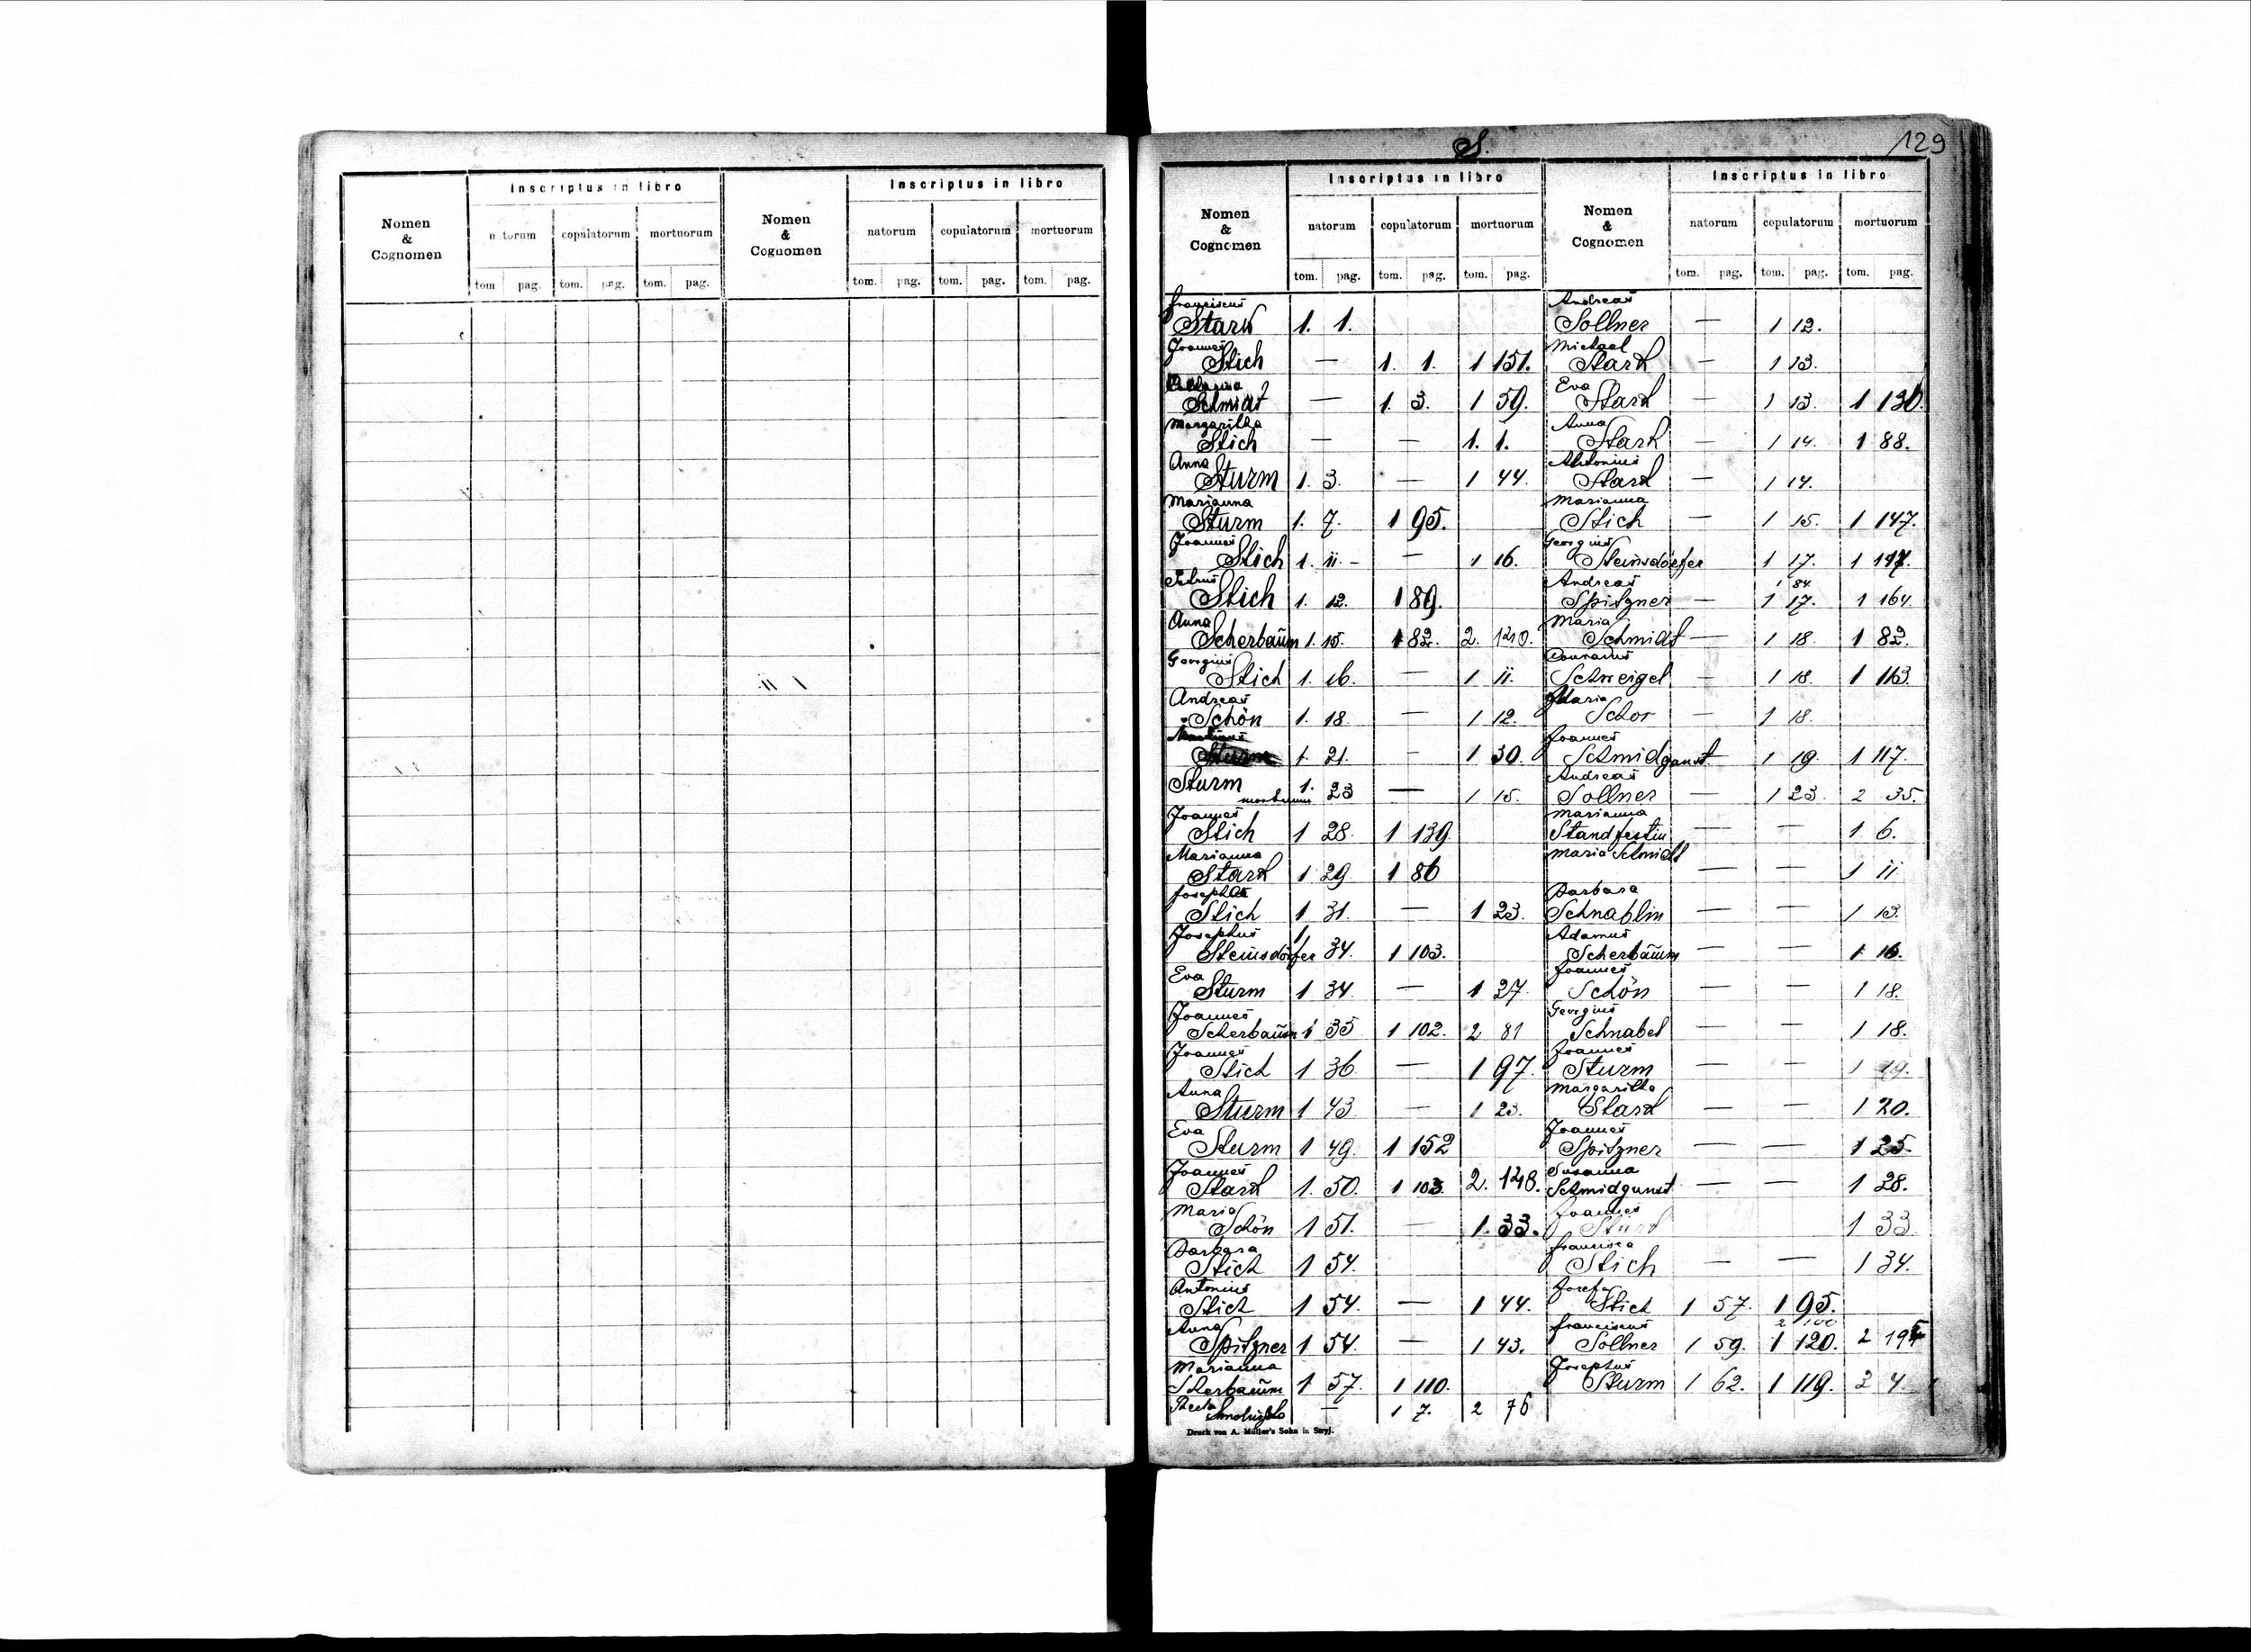 Inscriptus in libro
Inscriptus in libro
Nomen & Cognomen
natorum copulatorum mortuorum
Nomen & Cognomen
natorum copulatorum mortuorum
tom pag. tom. pag. tom. pag.
tom. pag. tom. pag. tom. pag.
S.
129
Inscriptus in libro
Inscriptus in libro
Nomen & Cognomen
natorum copulatorum mortuorum
Nomen & Cognomen
natorum copulatorum mortuorum
tom. pag. tom. pag. tom. pag.
tom. pag. tom. pag. tom. pag.
Franciscus
Stark 1. 1.
Joannes
Stich — 1. 1. 1 151.
Schmidt — 1. 3. 1 59.
Margaritha
Stich — — 1. 1.
Anna
Sturm 1. 3. — 1 44.
Marianna
Sturm 1. 7. 1 95.
Joannes
Stich 1. 11. — 1 16.
Petrus
Stich 1. 12. 1 89.
Anna
Scherbaŭm 1. 15. 1 82. 2. 120.
Georgius
Stich 1. 16. — 1 11.
Andreas
Schön 1. 18. — 1 12.
Sturm 1. 21. — 1 30.
Sturm 1. 23 — 1 15.
Joannes
Stich 1 28. 1 139.
Marianna
Stark 1 29. 1 86
Stich 1 31. — 1 23.
Josephus
Steinsdörfer 1 34. 1 103.
Eva
Sturm 1 34. — 1 27.
Joannes
Scherbaŭm 1 35 1 102. 2 81
Joannes
Stich 1 36. — 1 97.
Anna
Sturm 1 43. — 1 23.
Eva
Sturm 1 49. 1 152
Joannes
Stark 1. 50. 1 103. 2. 148.
Maria
Schön 1 51. — 1. 33.
Barbara
Stich 1 54.
Antonius
Stich 1 54. — 1 44.
Anna
Spitzner 1 54. — 1 43.
Marianna
Scherbaŭm 1 57. 1 110.
— 1 7. 2 76
Andreas
Sollner — 1 12.
Michael
Stark — 1 13.
Eva
Stark — 1 13. 1 130.
Anna
Stark — 1 14. 1 88.
Antonius
Stark — 1 14.
Marianna
Stich — 1 15. 1 147.
Georgius
Steinsdörfer 1 17. 1 117.
Andreas 1 84.
Spitzner — 1 17. 1 164.
Maria
Schmidt — 1 18. 1 82.
Conradus
Schweigel — 1 18. 1 113.
Maria
Schor — 1 18.
Joannes
Schmidgunst 1 19. 1 117.
Andreas
Sollner — 1 23. 2 35.
Marianna
Standfestin — — 1 6.
Maria Schmidt
— — 1 11
Barbara
Schnablin — — 1 13.
Adamus
Scherbaŭm — — 1 16.
Joannes
Schön — — 1 18.
Georgius
Schnabel — — 1 18.
Joannes
Sturm — — 1 19.
Margaritha
Stark — — 1 20.
Joannes
Spitzner — — 1 25.
Susanna
Schmidgunst — — 1 28.
Joannes
1 33.
Francisca
Stich — — 1 34.
Josef
Stich 1 57. 1 95.
Franciscus 2 100
Sollner 1 59. 1 120. 2 195
Josephus
Sturm 1 62. 1 119. 2 4.
Druck von A. Müller's Sohn in Stryj.